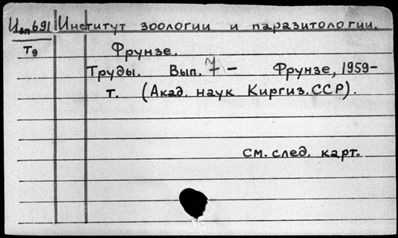 Изп691 Институт зоологии и паразитологии.
Тэ Фрунзе.
Труды. Вып. 7 – Фрунзе, 1959–
т. (Акад. наук Киргиз.ССР).
см. след. карт.